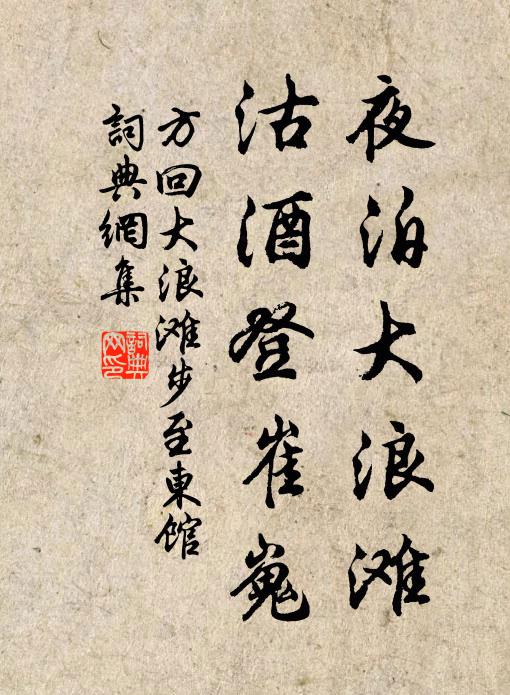 夜泊大浪滩
沽酒登崔嵬
方回大浪滩步至東館
詞典網集
詞典网印